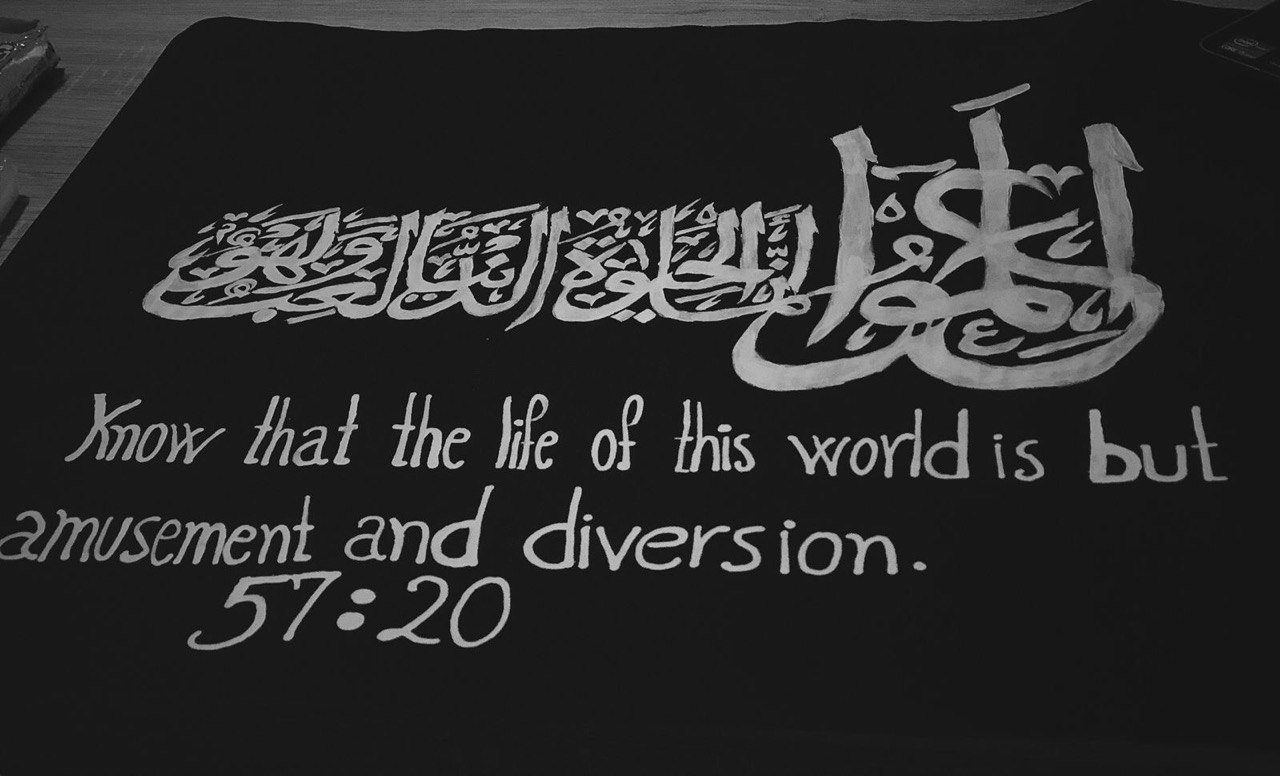 اعلموا أنما الحيوة الدنيا لعب ولهو
Know that the life of this world is but
amusement and diversion.
57:20